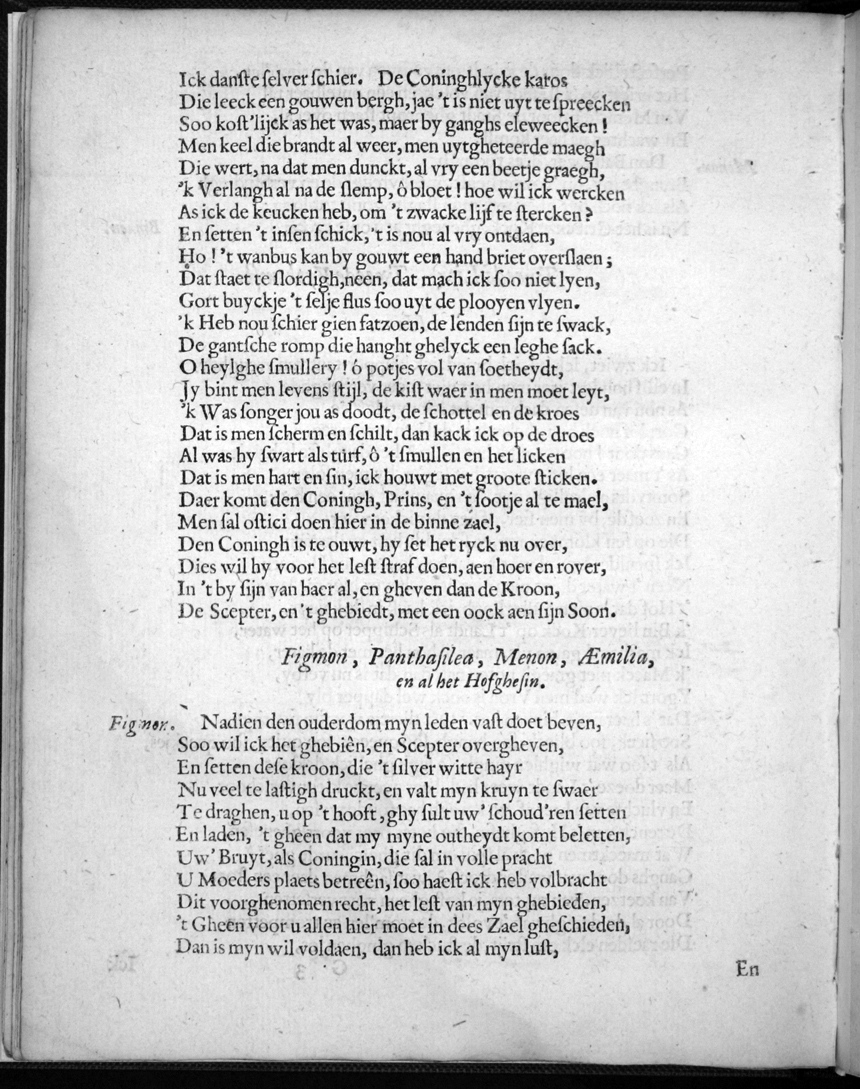 Ick danſte ſelver ſchier. De Coninghlycke karos
Die leeck een gouwen bergh, jae 't is niet uyt te ſpreecken
Soo koſt'lijck as het was, maer by ganghs eleweecken!
Men keel die brandt al weer, men uytgheteerde maegh
Die wert, na dat men dunckt, al vry een beetje graegh,
'k Verlangh al na de ſlemp, ô bloet! hoe wil ick wercken
As ick de keucken heb, om 't zwacke lijf te ſtercken?
En ſetten 't inſen ſchick, 't is nou al vry ontdaen,
Ho! 't wanbus kan by gouwt een hand briet overſlaen;
Dat ſtaet te ſlordigh, neen, dat mach ick ſoo niet lyen,
Gort buyckje 't ſelje flus ſoo uyt de plooyen vlyen.
'k Heb nou ſchier gien fatzoen, de lenden ſijn te ſwack,
De gantſche romp die hanght ghelyck een leghe ſack.
O heylghe ſmullery! ô potjes vol van ſoetheydt,
Jy bint men levens ſtijl, de kiſt waer in men moet leyt,
'k Was ſonger jou as doodt, de ſchottel en de kroes
Dat is men ſcherm en ſchilt, dan kack ick op de droes
Al was hy ſwart als turf, ô 't ſmullen en het licken
Dat is men hart en ſin, ick houwt met groote ſticken.
Daer komt den Coningh, Prins, en 't ſootje al te mael,
Men ſal oſtici doen hier in de binne zael,
Den Coningh is te ouwt, hy ſet het ryck nu over,
Dies wil hy voor het leſt ſtraf doen, aen hoer en rover,
In 't by ſijn van haer al, en gheven dan de Kroon,
De Scepter, en 't ghebiedt, met een oock aen ſijn Soon.
Figmon, Panthaſilea, Menon, Æmilia,
en al het Hofgheſin.
Figmon. Nadien den ouderdom myn leden vaſt doet beven,
Soo wil ick het ghebiên, en Scepter overgheven,
En ſetten deſe kroon, die 't ſilver witte hayr
Nu veel te laſtigh druckt, en valt myn kruyn te ſwaer
Te draghen, u op 't hooft, ghy ſult uw' ſchoud'ren ſetten
En laden, 't gheen dat my myne outheydt komt beletten,
Uw' Bruyt, als Coningin, die ſal in volle pracht
U Moeders plaets betreên, ſoo haeſt ick heb volbracht
Dit voorghenomen recht, het leſt van myn ghebieden,
't Gheen voor u allen hier moet in dees Zael gheſchieden,
Dan is myn wil voldaen, dan heb ick al myn luſt,
En